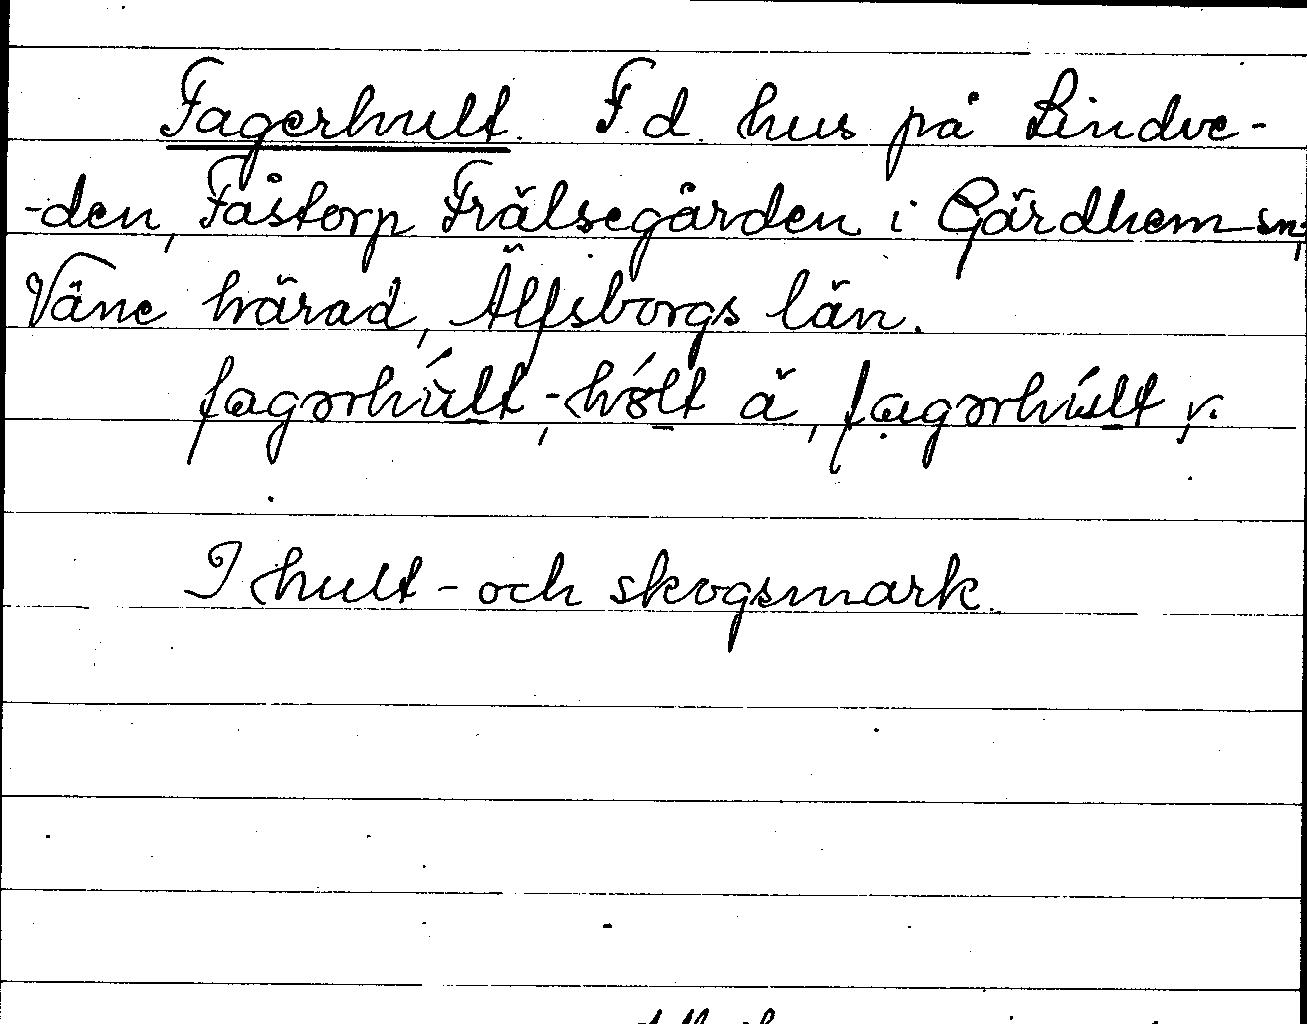 Fagerhult. F.d. hus på Lindve-
-den, Fåstorp Frälsegården i Gärdhem sn;
Väne härad, Älfsborgs län.
fagərhúlt, -hólt ä, fagərhúlt y.
I hult- och skogsmark.